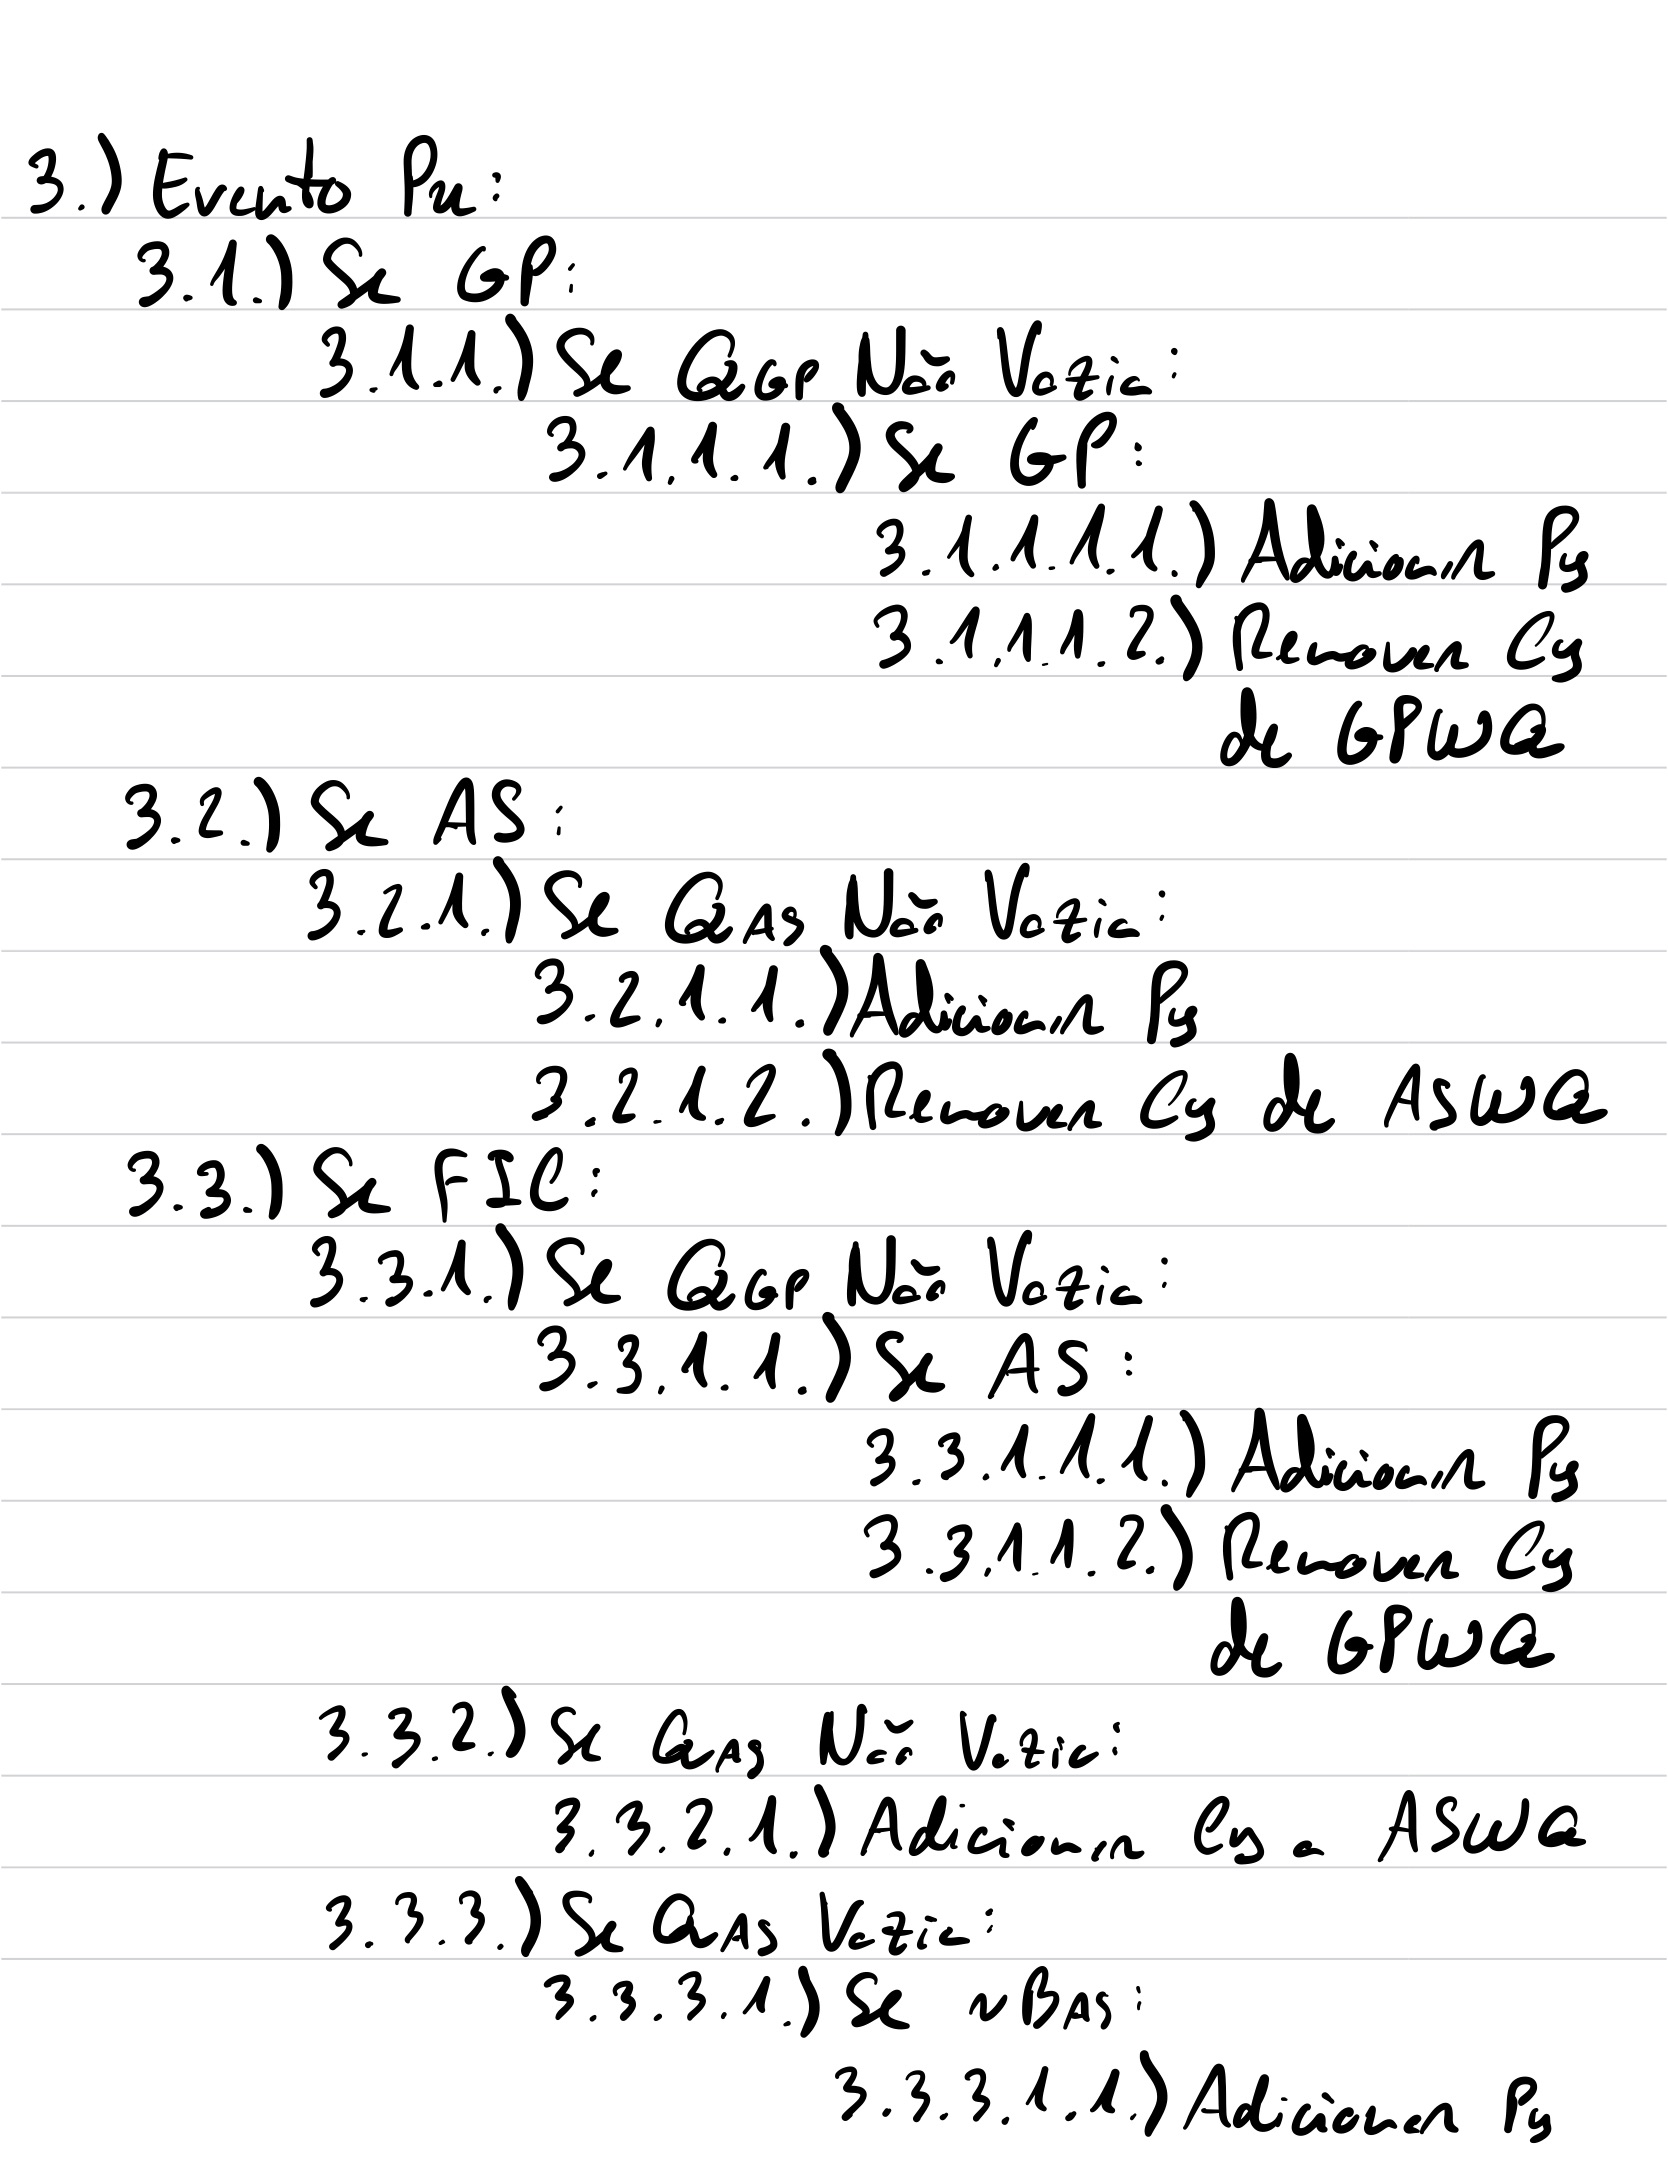 3.) Evento Px:
3.1.) Se GP:
3.1.1.) Se QGP Não Vazia:
3.1.1.1.) Se GP:
3.1.1.1.1.) Adicionar Py
3.1.1.1.2.) Remover Cy
de GPWQ
3.2.) Se AS:
3.2.1.) Se QAS Não Vazia:
3.2.1.1.) Adicionar Py
3.2.1.2.) Remover Cy de ASWQ
3.3.) Se FIC:
3.3.1.) Se QGP Não Vazia:
3.3.1.1.) Se AS:
3.3.1.1.1.) Adicionar Py
3.3.1.1.2.) Remover Cy
de GPWQ
3.3.2.) Se QAS Não Vazia:
3.3.2.1.) Adicionar Cy a ASWQ
3.3.3.) Se QAS Vazia:
3.3.3.1.) Se ~BAS:
3.3.3.1.1.) Adicionar Py